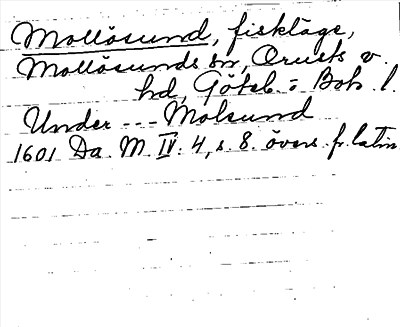 Mollösund, fiskläge,
Mollösunds sn, Orusts v.
hd, Göteb. = Boh. l.
Under --- Molsund
1601 Da. M. IV. 4, s. 8. övers. fr. latin